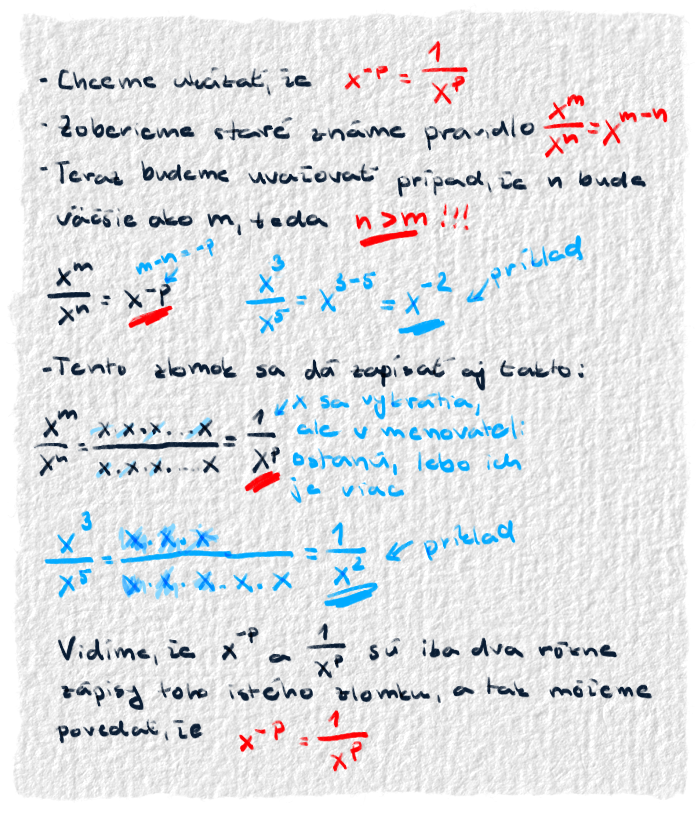 - Chceme ukázať, že x^-p = 1/x^p
- Zoberieme staré známe pravidlo x^m/x^n = x^m-n
- Teraz budeme uvažovať prípad, že n bude
väčšie ako m, teda n > m !!!
m-n = -p
x^m/x^n = x^-p x^3/x^5 = x^3-5 = x^-2 príklad
- Tento zlomok sa dá zapísať aj takto:
x^m/x^n = x.x.x....x/x.x.x....x = 1/x^p
x sa vykrátia,
ale v menovateli
ostanú, lebo ich
je viac
x^3/x^5 = x.x.x/x.x.x.x.x = 1/x^2 príklad
Vidíme, že x^-p a 1/x^p sú iba dva rôzne
zápisy toho istého zlomku, a tak môžeme
povedať, že x^-p = 1/x^p